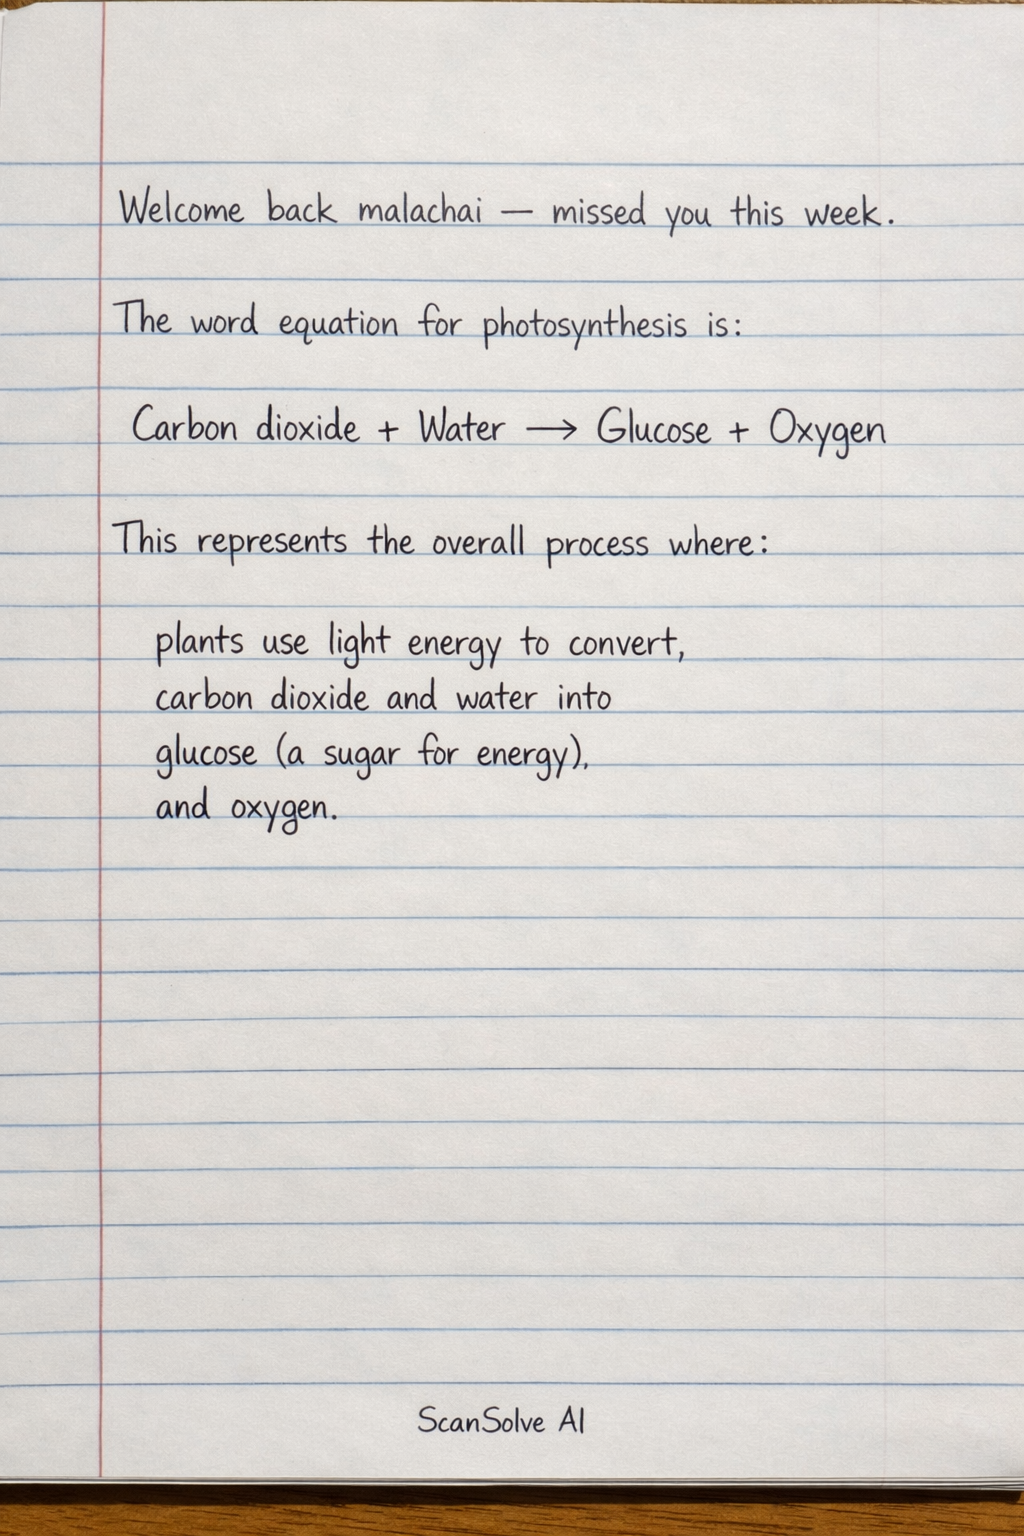 Welcome back malachai — missed you this week.
The word equation for photosynthesis is:
Carbon dioxide + Water → Glucose + Oxygen
This represents the overall process where:
plants use light energy to convert,
carbon dioxide and water into
glucose (a sugar for energy),
and oxygen.
ScanSolve AI